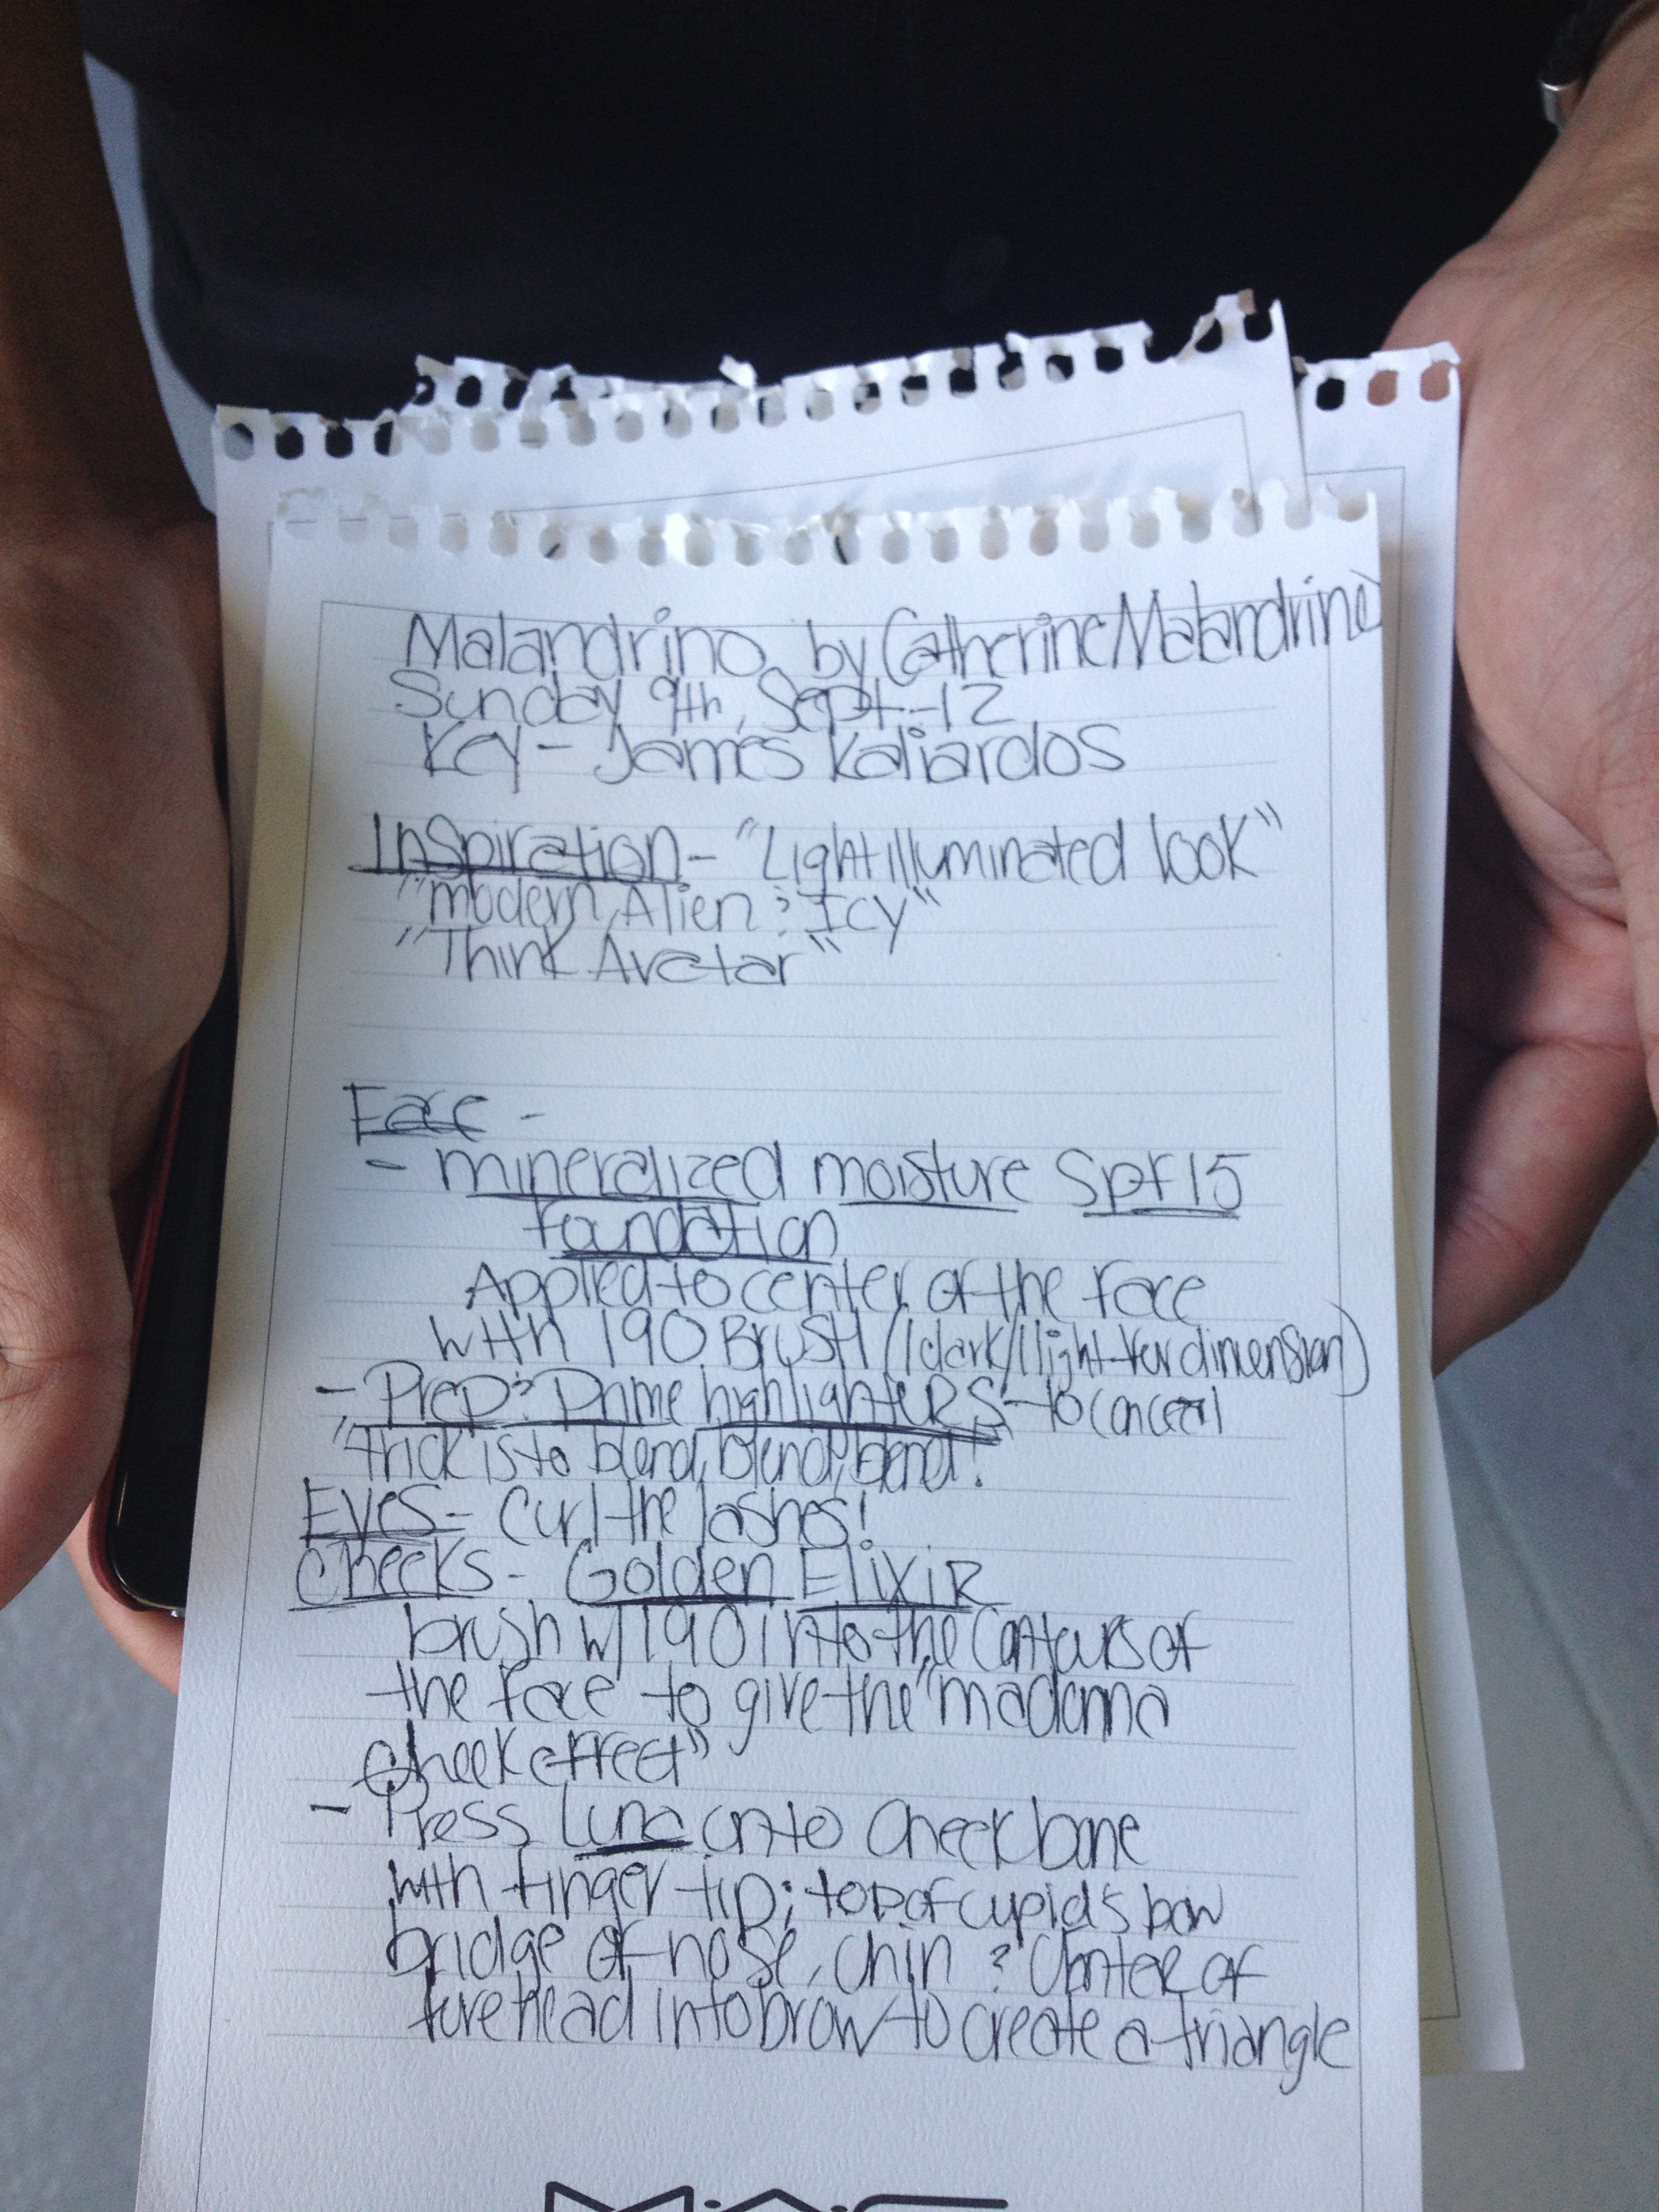 Malandrino by Catherine Malandrino
Sunday 9th, Sept-12
Key - James Kaliardos
Inspiration - "Light illuminated look"
"modern, Alien & Icy"
"Think Avatar"
Face -
- mineralized moisture Spf 15
foundation
Applied to center of the face
with 190 Brush (1 dark/1 light for dimension)
- Prep & Prime highlighters - to conceal
"trick is to blend, blend, blend!
Eyes - Curl the lashes!
Cheeks - Golden Elixir
brush w/ 190 into the contours of
the face to give the "madonna
cheek effect"
- Press Luna onto cheek bone
with finger tip; top of cupid's bow
bridge of nose, chin & Center of
forehead into brow to create a triangle
MAC